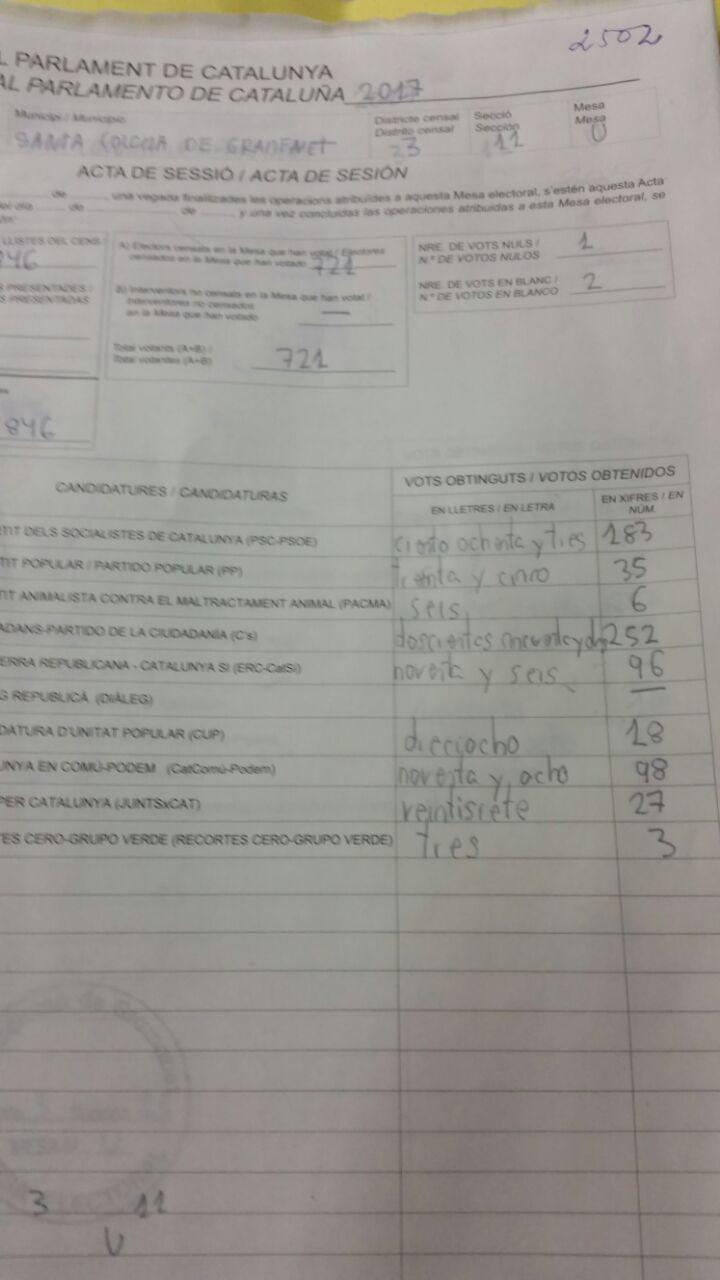 2502
L PARLAMENT DE CATALUNYA
AL PARLAMENTO DE CATALUÑA 2017
Municipi / Municipio
SANTA COLOMA DE GRAMENET
Districte censal
Distrito censal
3
Secció
Sección
11
Mesa
Mesa
U
ACTA DE SESSIÓ / ACTA DE SESIÓN
de , una vegada finalitzades les operacions atribuïdes a aquesta Mesa electoral, s'estén aquesta Acta
el día de de , y una vez concluidas las operaciones atribuidas a esta Mesa electoral, se
LLISTES DEL CENS
846
S PRESENTADES /
S PRESENTADAS
846
A) Electors censats en la Mesa que han votat / Electores
censados en la Mesa que han votado 721
B) Interventors no censats en la Mesa que han votat /
Interventores no censados
en la Mesa que han votado —
Total votants (A+B) /
Total votantes (A+B) 721
NRE. DE VOTS NULS /
N.º DE VOTOS NULOS 1
NRE. DE VOTS EN BLANC /
N.º DE VOTOS EN BLANCO 2
CANDIDATURES / CANDIDATURAS
VOTS OBTINGUTS / VOTOS OBTENIDOS
EN LLETRES / EN LETRA
EN XIFRES / EN
NÚM.
TIT DELS SOCIALISTES DE CATALUNYA (PSC-PSOE) ciento ochenta y tres 183
TIT POPULAR / PARTIDO POPULAR (PP) treinta y cinco 35
TIT ANIMALISTA CONTRA EL MALTRACTAMENT ANIMAL (PACMA) seis 6
ADANS-PARTIDO DE LA CIUDADANÍA (C's) doscientos cincuenta y dos 252
ERRA REPUBLICANA - CATALUNYA SÍ (ERC-CatSí) noventa y seis 96
G REPUBLICÀ (DIÀLEG) —
DATURA D'UNITAT POPULAR (CUP) dieciocho 18
UNYA EN COMÚ-PODEM (CatComú-Podem) noventa y ocho 98
PER CATALUNYA (JUNTSxCAT) veintisiete 27
TES CERO-GRUPO VERDE (RECORTES CERO-GRUPO VERDE) tres 3
3 11
U